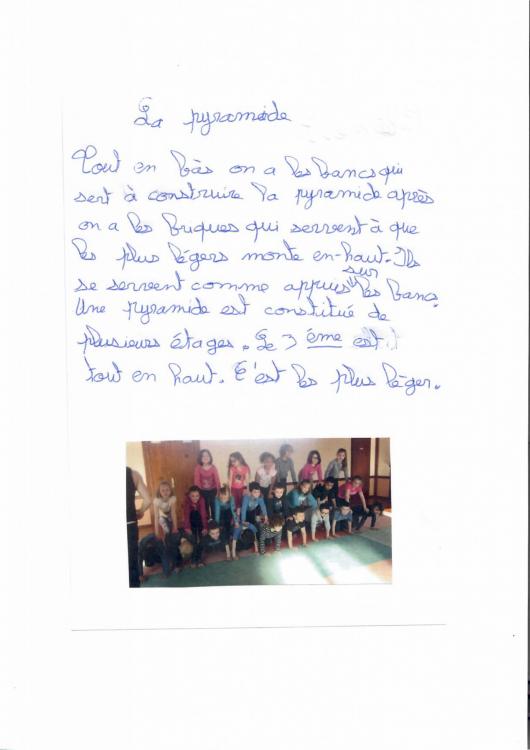 La pyramide
Tout en bas on a les bancs qui
sert à construire la pyramide après
on a les briques qui servent à que
les plus légers monte en-haut. Ils
se servent comme appuis sur les banc.
Une pyramide est constitué de
plusieurs étages. Le 3 ème est
tout en haut. C'est les plus léger.